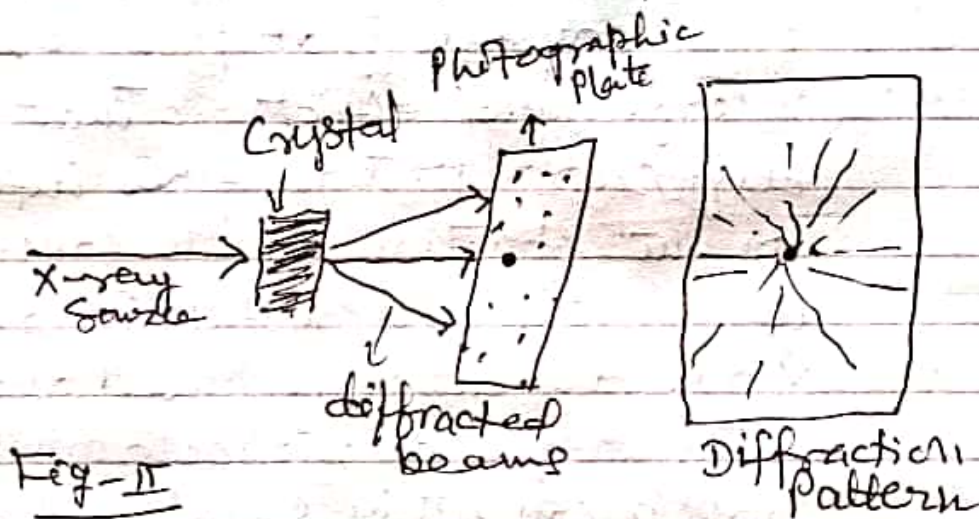 Photographic
Plate
Crystal
X-ray
Source
diffracted
beams
Diffraction
Pattern
Fig-II